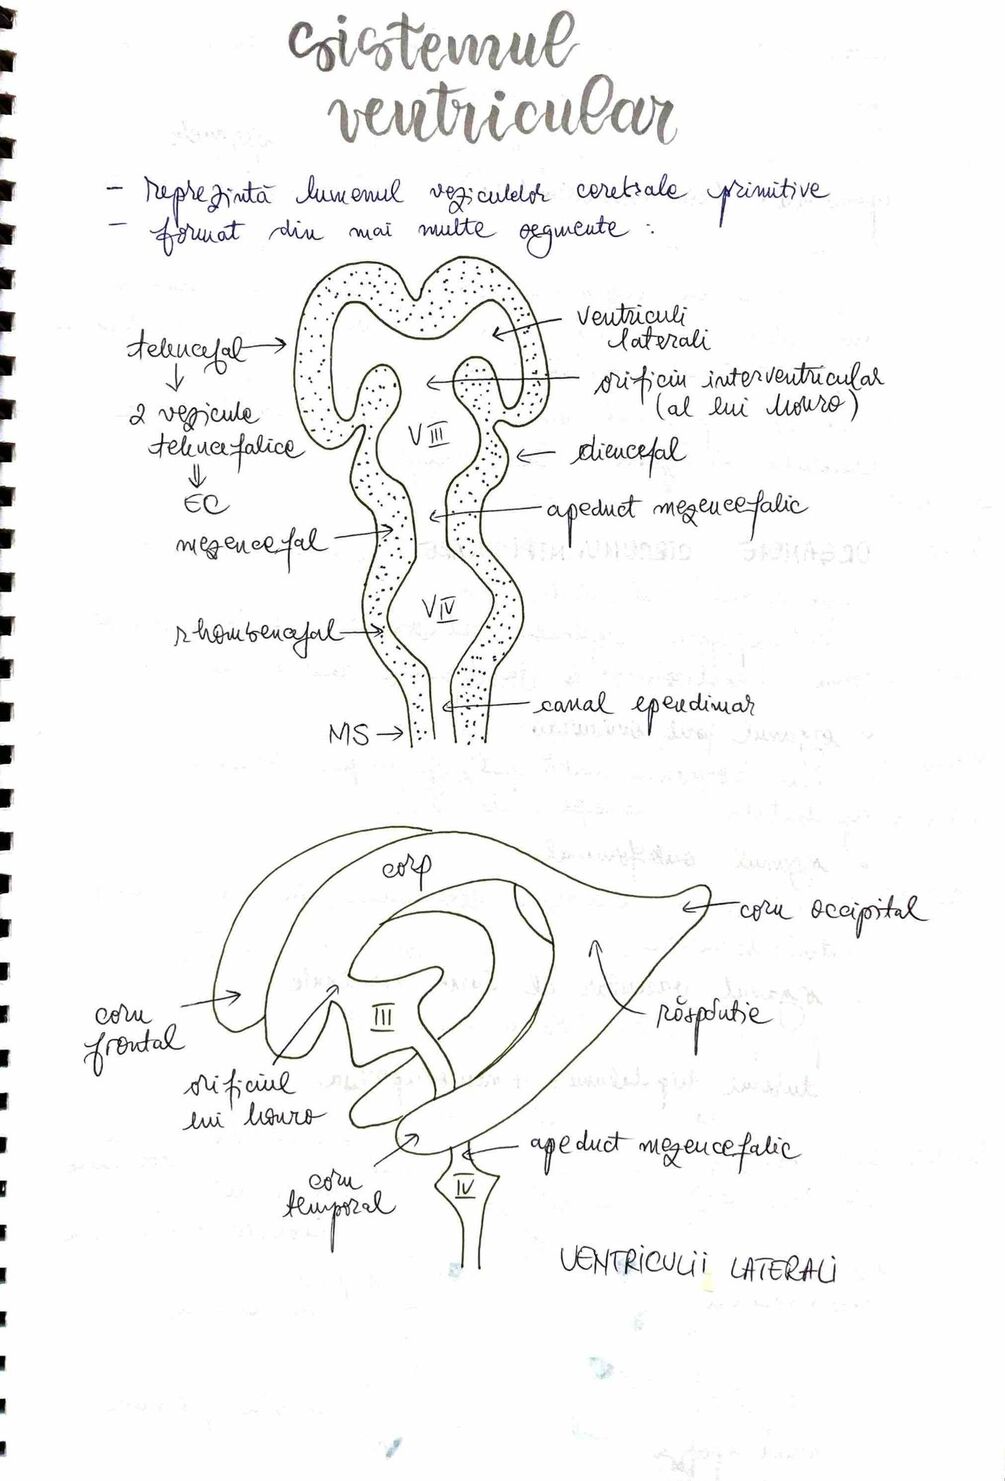 sistemul
ventricular
- reprezintă lumenul veziculelor cerebrale primitive
- format din mai multe segmente :
telencefal
2 vezicule
telencefalice
EC
mezencefal
rhombencefal
MS
ventriculi
laterali
orificiu interventricular
(al lui Monro)
V III
diencefal
apeduct mezencefalic
V IV
canal ependimar
corp
corn occipital
răspântie
corn
frontal
III
orificiul
lui Monro
corn
temporal
apeduct mezencefalic
IV
VENTRICULII LATERALI